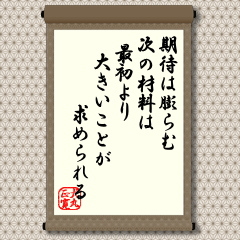 期待は膨らむ
次の材料は
最初より
大きいことが
求められる